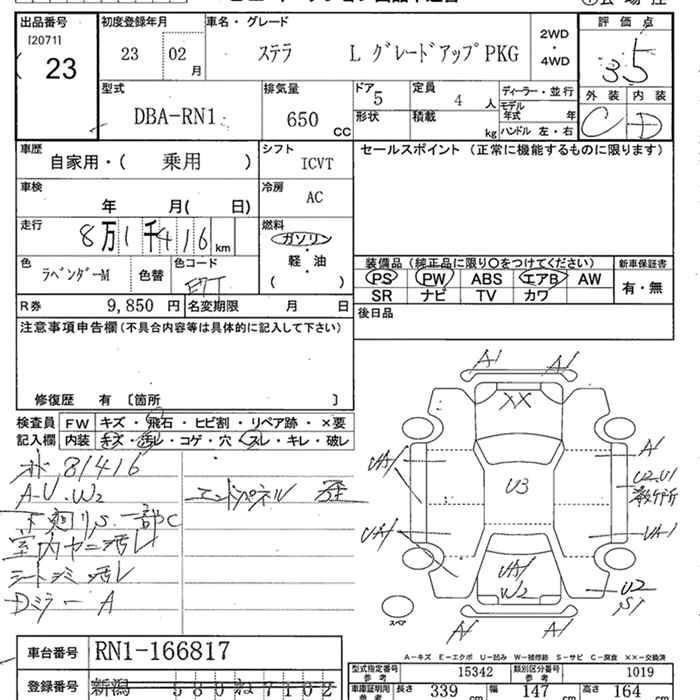 出品番号 初度登録年月 車名・グレード 評価点
[20711]
23 23 02月 ステラ L グレードアップPKG 2WD・4WD 35
型式 排気量 ドア 定員 ディーラー・並行 外装 内装
DBA-RN1 650 CC 5 4 人 モデル年式 年 C D
形状 積載 kg ハンドル 左・右
車歴 シフト セールスポイント(正常に機能するものに限ります)
自家用・( 乗用 ) ICVT
車検 冷房
年 月( 日) AC
走行 燃料
8万1千416km ガソリン
軽・油
( )
色 色替 色コード
ラベンダーM
装備品(純正品に限り○をつけてください) 新車保証書
PS PW ABS エアB AW 有・無
SR ナビ TV カワ
R券 9,850 円 名変期限 月 日 後日品
注意事項申告欄(不具合内容等は具体的に記入して下さい)
修復歴 有 〔箇所 〕
検査員 FW キズ・飛石・ヒビ割・リペア跡・×要
記入欄 内装 キズ・汚レ・コゲ・穴・スレ・キレ・破レ
81416
A-U.W2 エンドパネル
下廻りS 一部C
室内ヤニ汚レ
シートシミ汚レ
Dミラー A
A1 A1
XX
UA1 A1
U3 U2.U1
UA1 UA1
UA1 W2 U2 S1
スペア A1 A1
A-キズ E-エクボ U-凹み W-補修跡 S-サビ C-腐食 ××-交換済
車台番号 RN1-166817
型式指定番号 参考 15342 類別区分番号 参考 1019
登録番号 新潟 580ね7102
車庫証明用 参考 長さ 339 cm 幅 147 cm 高さ 164 cm